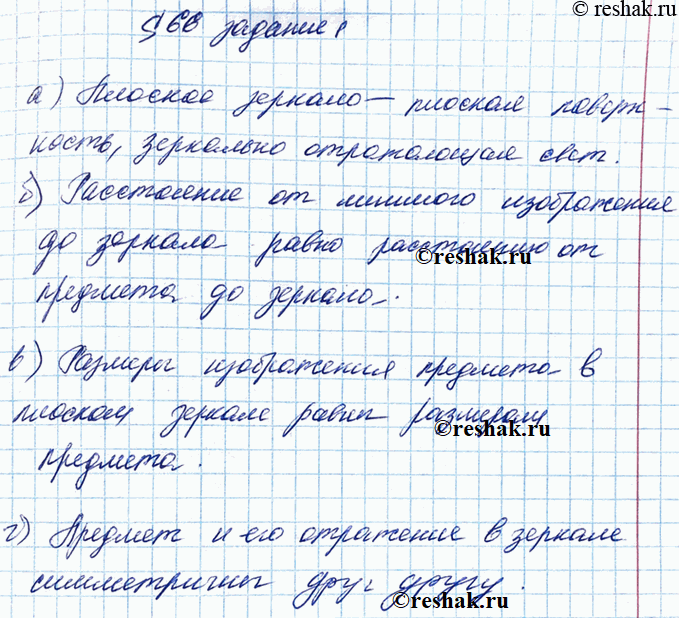 © reshak.ru
§ 66 задание 1
а) Плоское зеркало — плоская поверх-
ность, зеркально отражающая свет.
б) Расстояние от мнимого изображения
до зеркала равно расстоянию от
©reshak.ru
предмета до зеркала.
в) Размеры изображения предмета в
плоском зеркале равны размерам
©reshak.ru
предмета.
г) Предмет и его отражение в зеркале
симметричны друг другу.
©reshak.ru